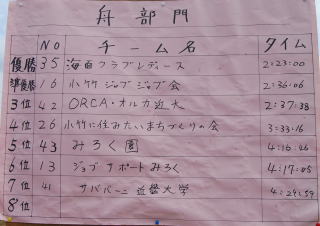 舟部門
NO チーム名 タイム
優勝 35 海面クラブレディース 2:23:00
準優勝 16 小竹ジョブジョブ会 2:36:06
3位 42 ORCA・オルカ近大 2:37:38
4位 26 小竹に住みたいまちづくりの会 3:33:16
5位 43 みろく園 4:16:46
6位 13 ジョブサポートみろく 4:17:05
7位 41 サババーニ近畿大学 4:24:59
8位